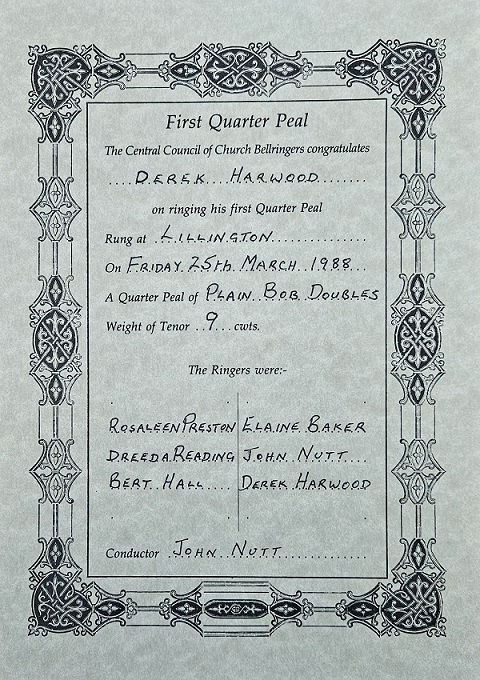 First Quarter Peal
The Central Council of Church Bellringers congratulates
DEREK HARWOOD
on ringing his first Quarter Peal
Rung at LILLINGTON
On FRIDAY 25th MARCH 1988
A Quarter Peal of PLAIN BOB DOUBLES
Weight of Tenor 9 cwts.
The Ringers were:-
ROSALEEN PRESTON ELAINE BAKER
DREEDA READING JOHN NUTT
BERT HALL DEREK HARWOOD
Conductor JOHN NUTT